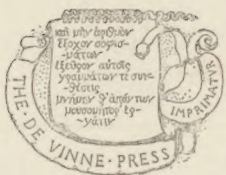 καὶ μὴν ἀριθμὸν
ἔξοχον σοφισ-
-μάτων
ἐξεῦρον αὐτοῖς
γραμμάτων τε συν-
-θέσεις
μνήμην θ' ἁπάντων
μουσομήτορ' ἐρ-
γάνην
THE · DE VINNE · PRESS
IMPRIMATVR